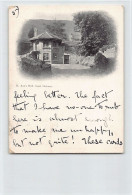 feeling better. The fact
that I have no-one to meet
here is almost enough
to make me unhappy,
but not quite! These cards